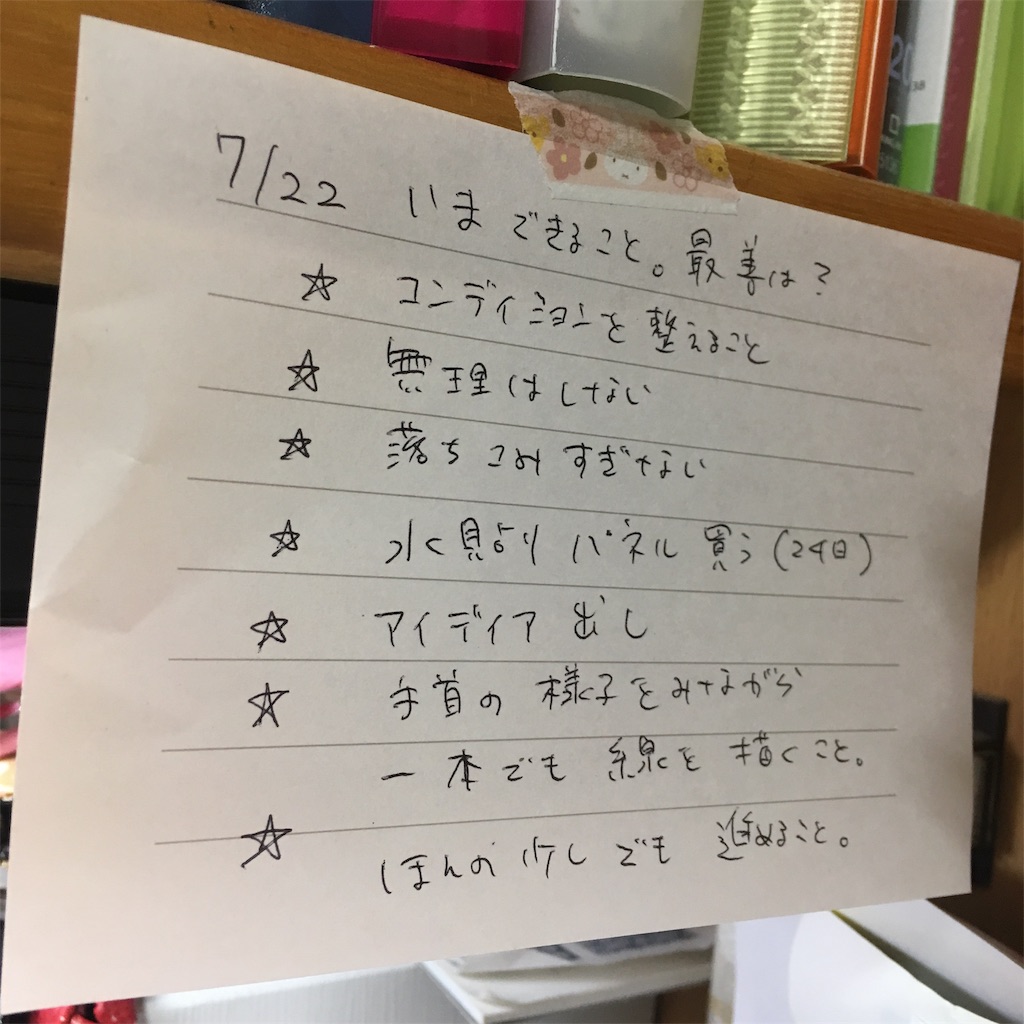 7/22 いまできること。最善は?
☆ コンディションを整えること
☆ 無理はしない
☆ 落ちこみすぎない
☆ 水貝よりパネル買う(24日)
☆ アイディア出し
☆ 手首の様子をみながら
一本でも線を描くこと。
☆ ほんの少しでも進めること。
20